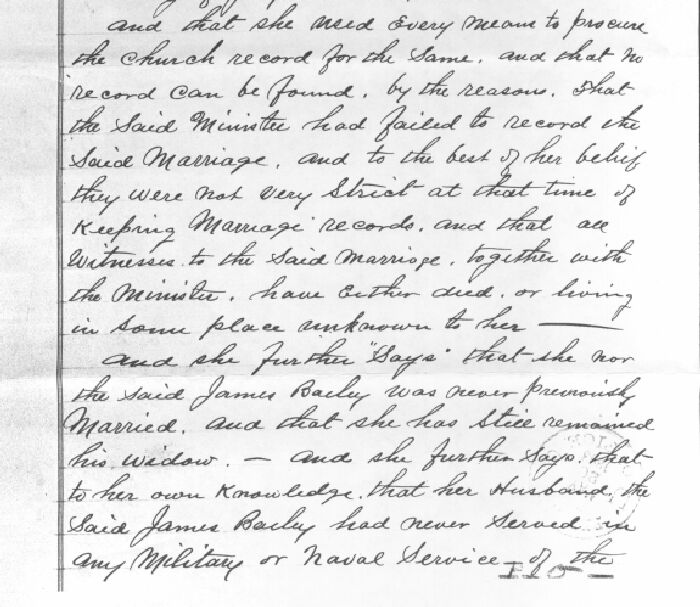 and that she used Every means to procure
the Church record for the Same. and that no
record can be found. by the reasons. That
the Said Minister had failed to record the
Said Marriage. and to the best of her belief
they were not very Strict at that time of
Keeping Marriage records. and that all
Witnesses. to the Said Marriage. together with
the Minister. have Either died. or living
in some place unknown to her —
and she further "Says" that she nor
the said James Bailey was never previously
Married. and that she has Still remained
his widow. — and she further Says. that
to her own Knowledge. that her Husband. the
Said James Bailey had never Served in
any Military or Naval Service of the